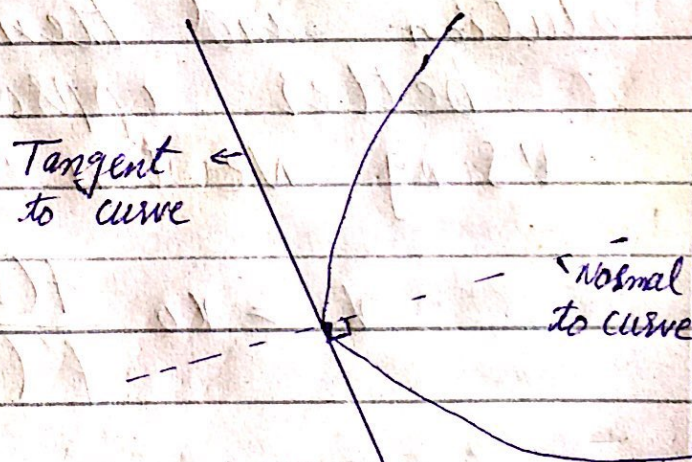 Tangent
to curve
Normal
to curve